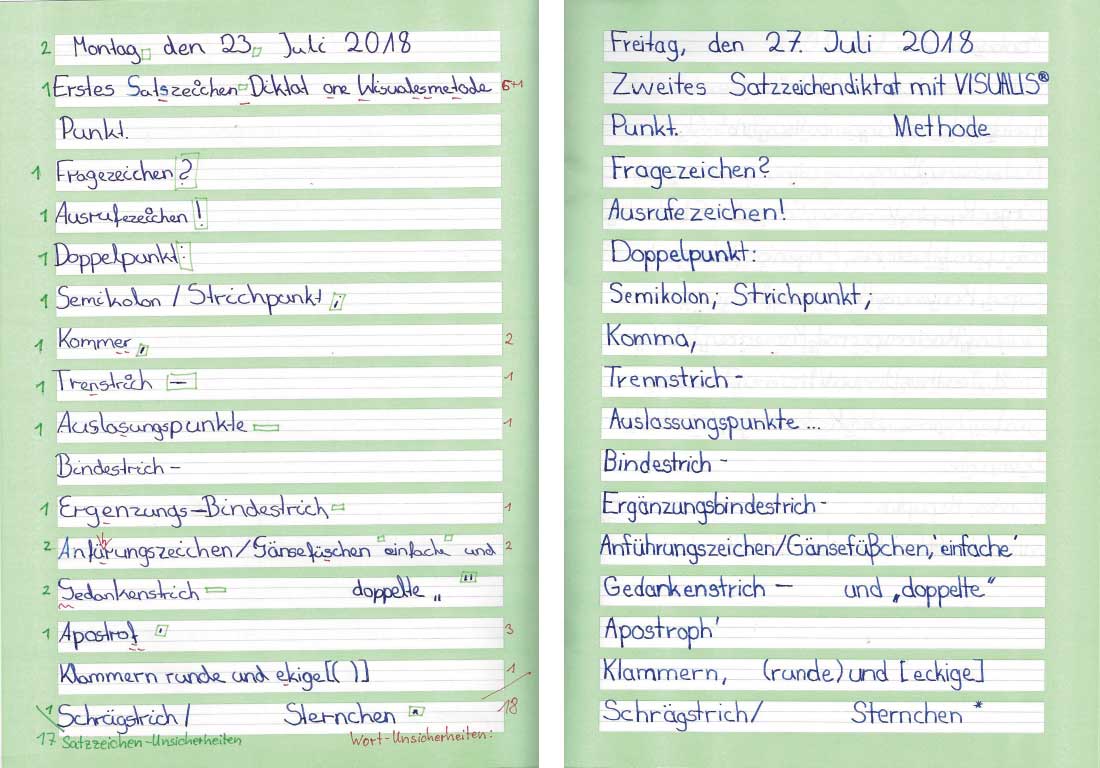 2 Montag, den 23. Juli 2018
1 Erstes Satszeichen-Diktat one Wisualesmetode 6+1
Punkt.
1 Fragezeichen ?
1 Ausrufezeichen !
1 Doppelpunkt :
1 Semikolon / Strichpunkt ;
1 Kommer , 2
1 Trenstrich — 1
1 Auslosungspunkte 1
Bindestrich -
1 Ergenzungs-Bindestrich 1
2 Anfürungszeichen/Gänsefüschen einfache und 2
2 Gedankenstrich doppelte „ "
1 Apostrof ' 3
Klammern runde und ekige [( )] 1
1 Schrägstrich / Sternchen * 18
17 Satzzeichen-Unsicherheiten Wort-Unsicherheiten:
Freitag, den 27. Juli 2018
Zweites Satzzeichendiktat mit VISUALIS®
Punkt. Methode
Fragezeichen?
Ausrufezeichen!
Doppelpunkt:
Semikolon; Strichpunkt;
Komma,
Trennstrich -
Auslassungspunkte ...
Bindestrich -
Ergänzungsbindestrich -
Anführungszeichen/Gänsefüßchen,'einfache'
Gedankenstrich — und „doppelte“
Apostroph'
Klammern, (runde) und [eckige]
Schrägstrich/ Sternchen *